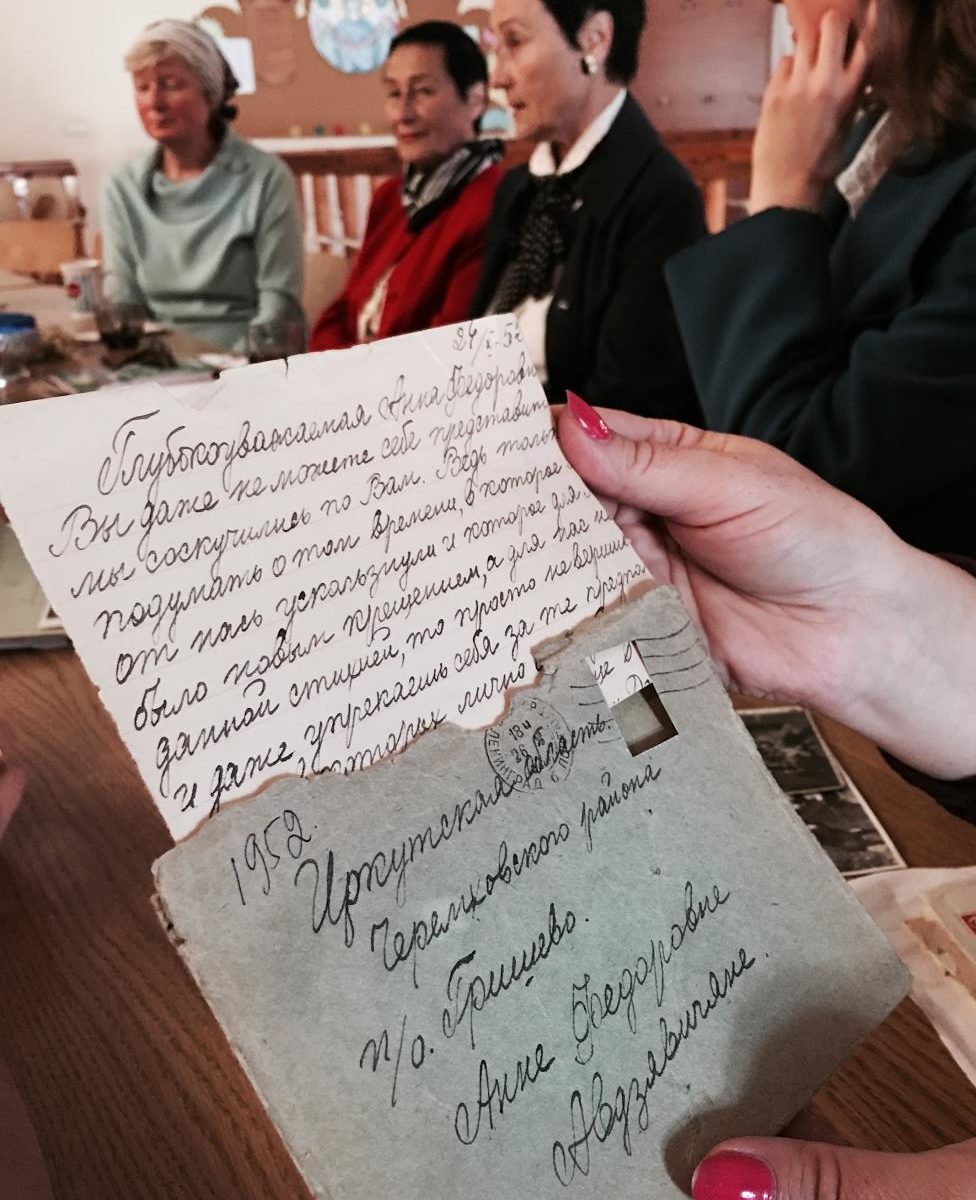 24/X-52
Глубокоуважаемая Анна Федоровн
Вы даже не можете себе представить
мы соскучились по Вам. Ведь только
подумать о том времени, в которое
от нась ускользнули и которое для
было новым крещением, а для нас
данной стихией, то просто не веришь
и даже упрекаешь себя за те предпо
которых лично
1952.
Иркутская область.
Черемховского района
п/о. Гришево.
Анне Федоровне
Авдзявичяне.